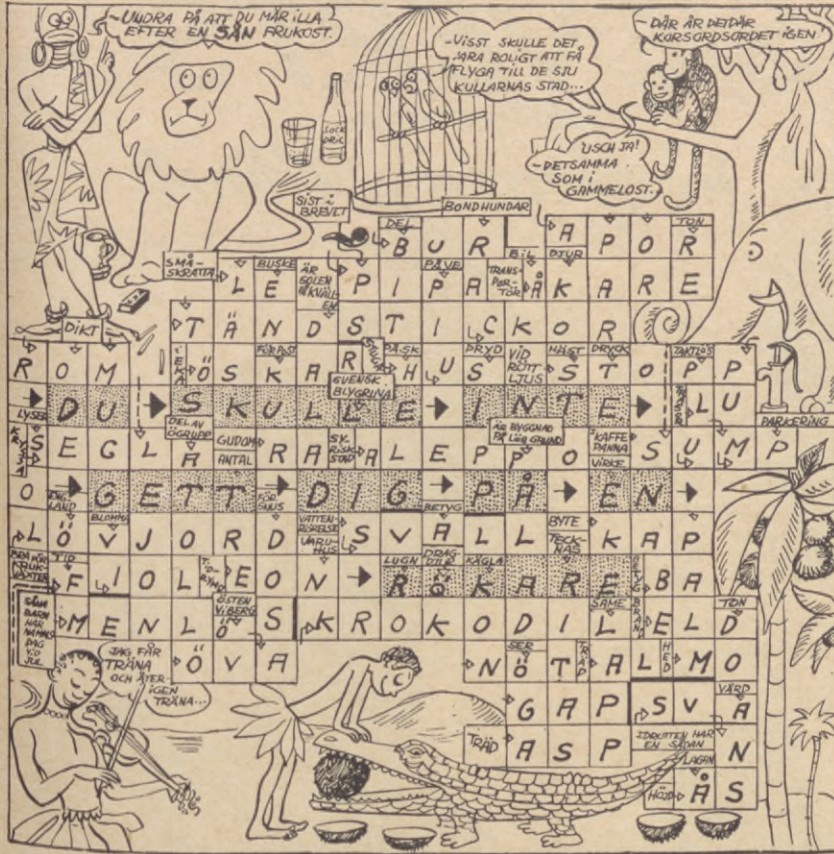 -UNDRA PÅ ATT DU MÅR ILLA
EFTER EN SÅN FRUKOST.
-VISST SKULLE DET
VARA ROLIGT ATT FÅ
FLYGA TILL DE SJU
KULLARNAS STAD...
-DÄR ÄR DET DÄR
KORSORDSORDET IGEN
USCH JA!
-DETSAMMA
SOM I
GAMMELOST.
SOCK
DRIC
SIST I
BREVET
BONDHUNDAR
DEL
TON
B U R A P O R
SMÅ-
SKRATTA
BUSKE
ÄR
GULEN
PÅ KVÄLL
EN
PÅVE
BIL
DJUR
TRANS-
POR-
TÖR
L E P I P A Å K A R E
DIKT
T Ä N D S T I C K O R
FÖRPOST
PÅSK
PRYD
VID
RÖTT
LJUS
HÄST
DRYCK
TAKTLÖS
R O M Ö S K A R H U S S T O P P
SVENSK
BLYGRUNA
LYSER
D U S K U L L E I N T E L U
PARKERING
DEL AV
ÖGRUPP
GUDOM
ANTAL
SY-
RISK
STAD
ÄR BYGGNAD
PÅ LÖS GRUND
KAFFE
PANNA
VIRKE
S E G L A R A A L E P P O S U M P
O G E T T D I G P Å E N
LAND
FÖR
SUUS
BETYG
BLOMMA
VATTEN-
RÖRELSE
VARU-
HUS
BYTE
TECK-
NAS
L Ö V J O R D S V A L L K A P
BRA FÖR
KRUK-
VÄXTER
TID
TID-
RYMD
LUGN
DRAG
DJUR
KÄGLA
F I O L E O N R Ö K A R E B A
SÅNA
BARN
HAR
NAMNS
DAG
VID
JUL
ÖSTEN
VIBERG
SAME
TON
M E N L Ö S K R O K O D I L E L D
JAG FÅR
TRÄNA
OCH ÅTER-
IGEN
TRÄNA...
SER
HED
Ö V A N Ö T A L M O
VÄRD
G A P S V A
TRÄD
IDROTTEN HAR
EN SÅDAN
LAGAN
A S P N
HÖJD
Å S